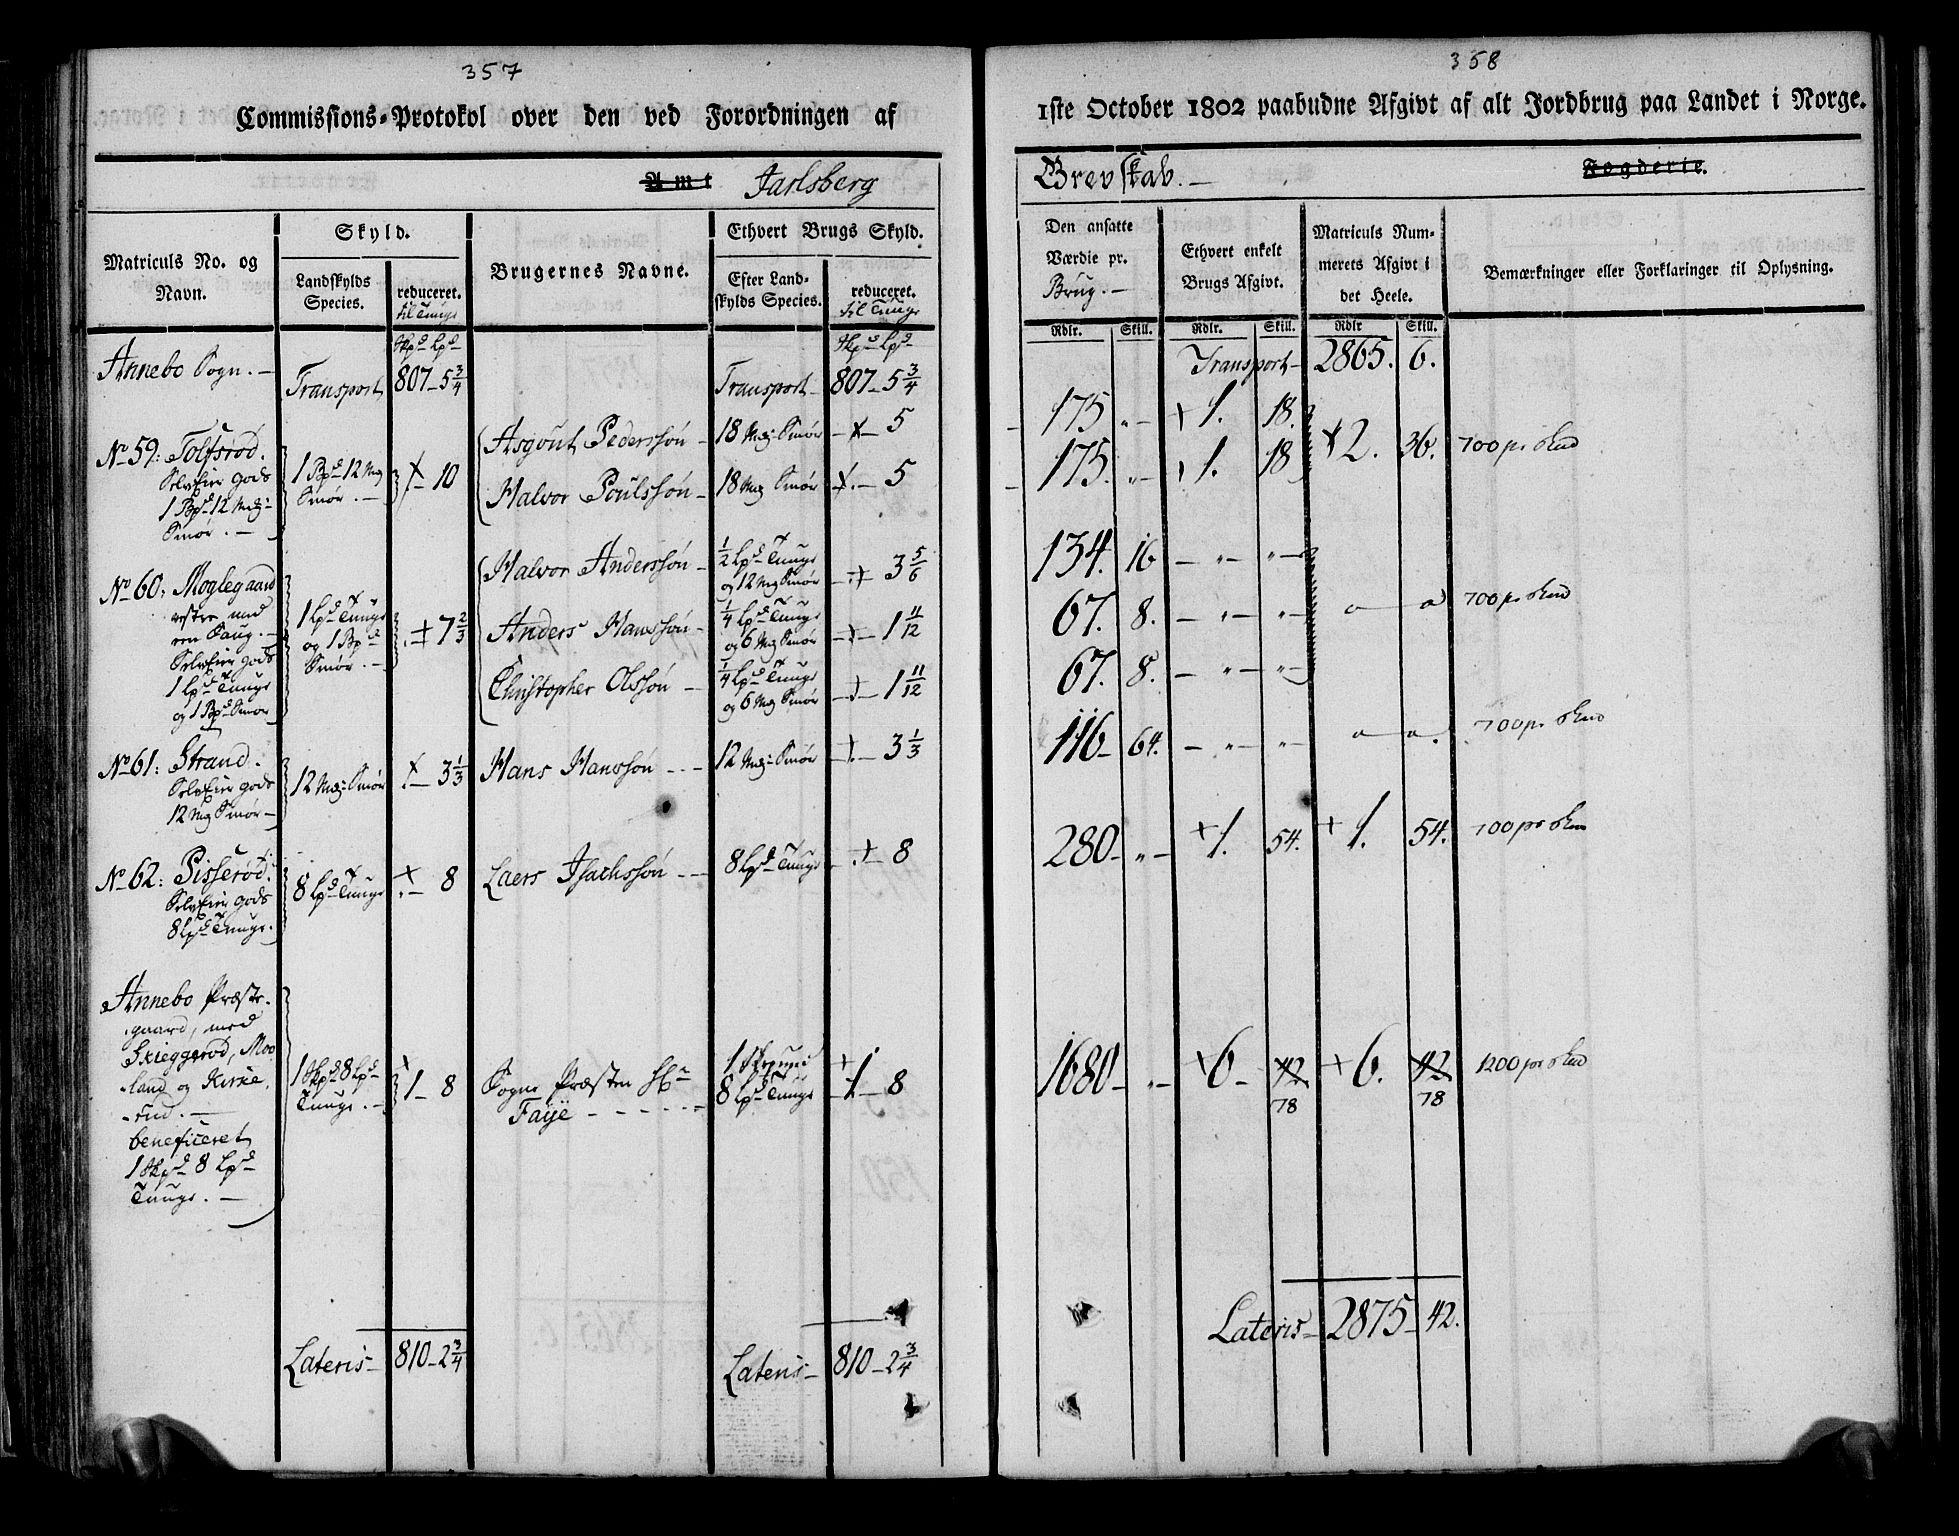 357
Commissions-Protokol over den ved Forordningen af
Amt Jarlsberg
Matriculs No. og Navn.
Skyld.
Landskylds Species.
reduceret. til Tunge
Brugernes Navne.
Ethvert Brugs Skyld.
Efter Landskylds Species.
reduceret. til Tunge
Skpd Lpd
Skpd Lpd
Annebo Sogn. —
Transport 807 - 5 3/4
Transport - 807 - 5 3/4
No 59: Tolfsrød.
SelvEier Gods
1 Bpd 12 Mg:
Smør. —
1 Bpd 12 Mg
Smør. —
10
Asgout Pederssøn - 18 Mg: Smør 5
Halvor Poulssøn - 18 Mg Smør 5
No 60: Moglegaard
vestre med
een Saug. —
SelvEier Gods
1 Lpd Tunge
og 1 Bpd Smør
1 Lpd Tunge
og 1 Bpd
Smør. —
7 2/3
Halvor Anderssøn - 1/2 Lpd Tunge
og 12 Mg Smør 3 5/6
Anders Hanssøn - 1/4 Lpd Tunge
og 6 Mg Smør 1 11/12
Christopher Olssøn - 1/4 Lpd Tunge
og 6 Mg Smør 1 11/12
No 61: Strand.
SelvEier Gods
12 Mg Smør —
12 Mg: Smør
3 1/3
Hans Hanssøn - - - 12 Mg: Smør 3 1/3
No 62: Pisserød.
SelvEier Gods
8 Lpd Tunge.
8 Lpd Tunge
8
Laers Isachssøn - - 8 Lpd Tunge 8
Annebo Præste-
gaard, med
Skieggerød, Moe-
land og Kirke-
rud. —
beneficeret
1 Skpd 8 Lpd
Tunge. —
1 Skpd 8 Lpd
Tunge. —
1 - 8
Sogne Præsten Hr
Faÿe - - - - - -
1 Skippund
8 Lpd Tunge 1 - 8
Lateris - 810 - 2 3/4
Lateris - 810 - 2 3/4
358
1ste October 1802 paabudne Afgivt af alt Jordbrug paa Landet i Norge.
Grevskab. —
Fogderie.
Den ansatte Værdie pr. Brug. —
Ethvert enkelt Brugs Afgivt.
Matriculs Nummerets Afgivt i det Heele.
Bemærkninger eller Forklaringer til Oplysning.
Rdlr. Skill. Rdlr. Skill. Rdlr Skill.
Transport - 2865. 6.
175 „ - 1. 18.
175. „ - 1. 18 2. 36. 700 pr Skud
134. 16 - „ - „ -
67. 8. - „ - „ - 700 pr Skud
67. 8. - „ - „ -
116 - 64. - „ - „ - 700 pr Skud
280 - „ - 1. 54. 1. 54. 700 pr Skud
1680 - „ - 6 - 42 6. 42 1200 pr Skud
78 78
Lateris - 2875 - 42.